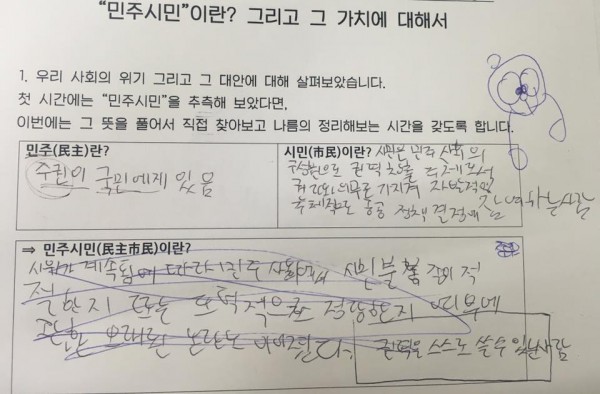 "민주시민"이란? 그리고 그 가치에 대해서
1. 우리 사회의 위기 그리고 그 대안에 대해 살펴보았습니다.
첫 시간에는 "민주시민"을 추측해 보았다면,
이번에는 그 뜻을 풀어서 직접 찾아보고 나름의 정리해보는 시간을 갖도록 합니다.
민주(民主)란?
주권이 국민에게 있음
시민(市民)이란? 시민은 민주 사회의
구성원으로 권력 창출의 주체로서
권리와 의무를 가지며 자발적이고
주체적으로 공공 정책 결정에 참여하는 사람
⇒ 민주시민(民主市民)이란?
시위가 계속됨에 따라 민주 사회에서 시민불복종이 적
절한지 또는 도덕적으로 정당한지 여부에
오래된 논란은 이어진다.
권력을 스스로 쓸 수 있는 사람